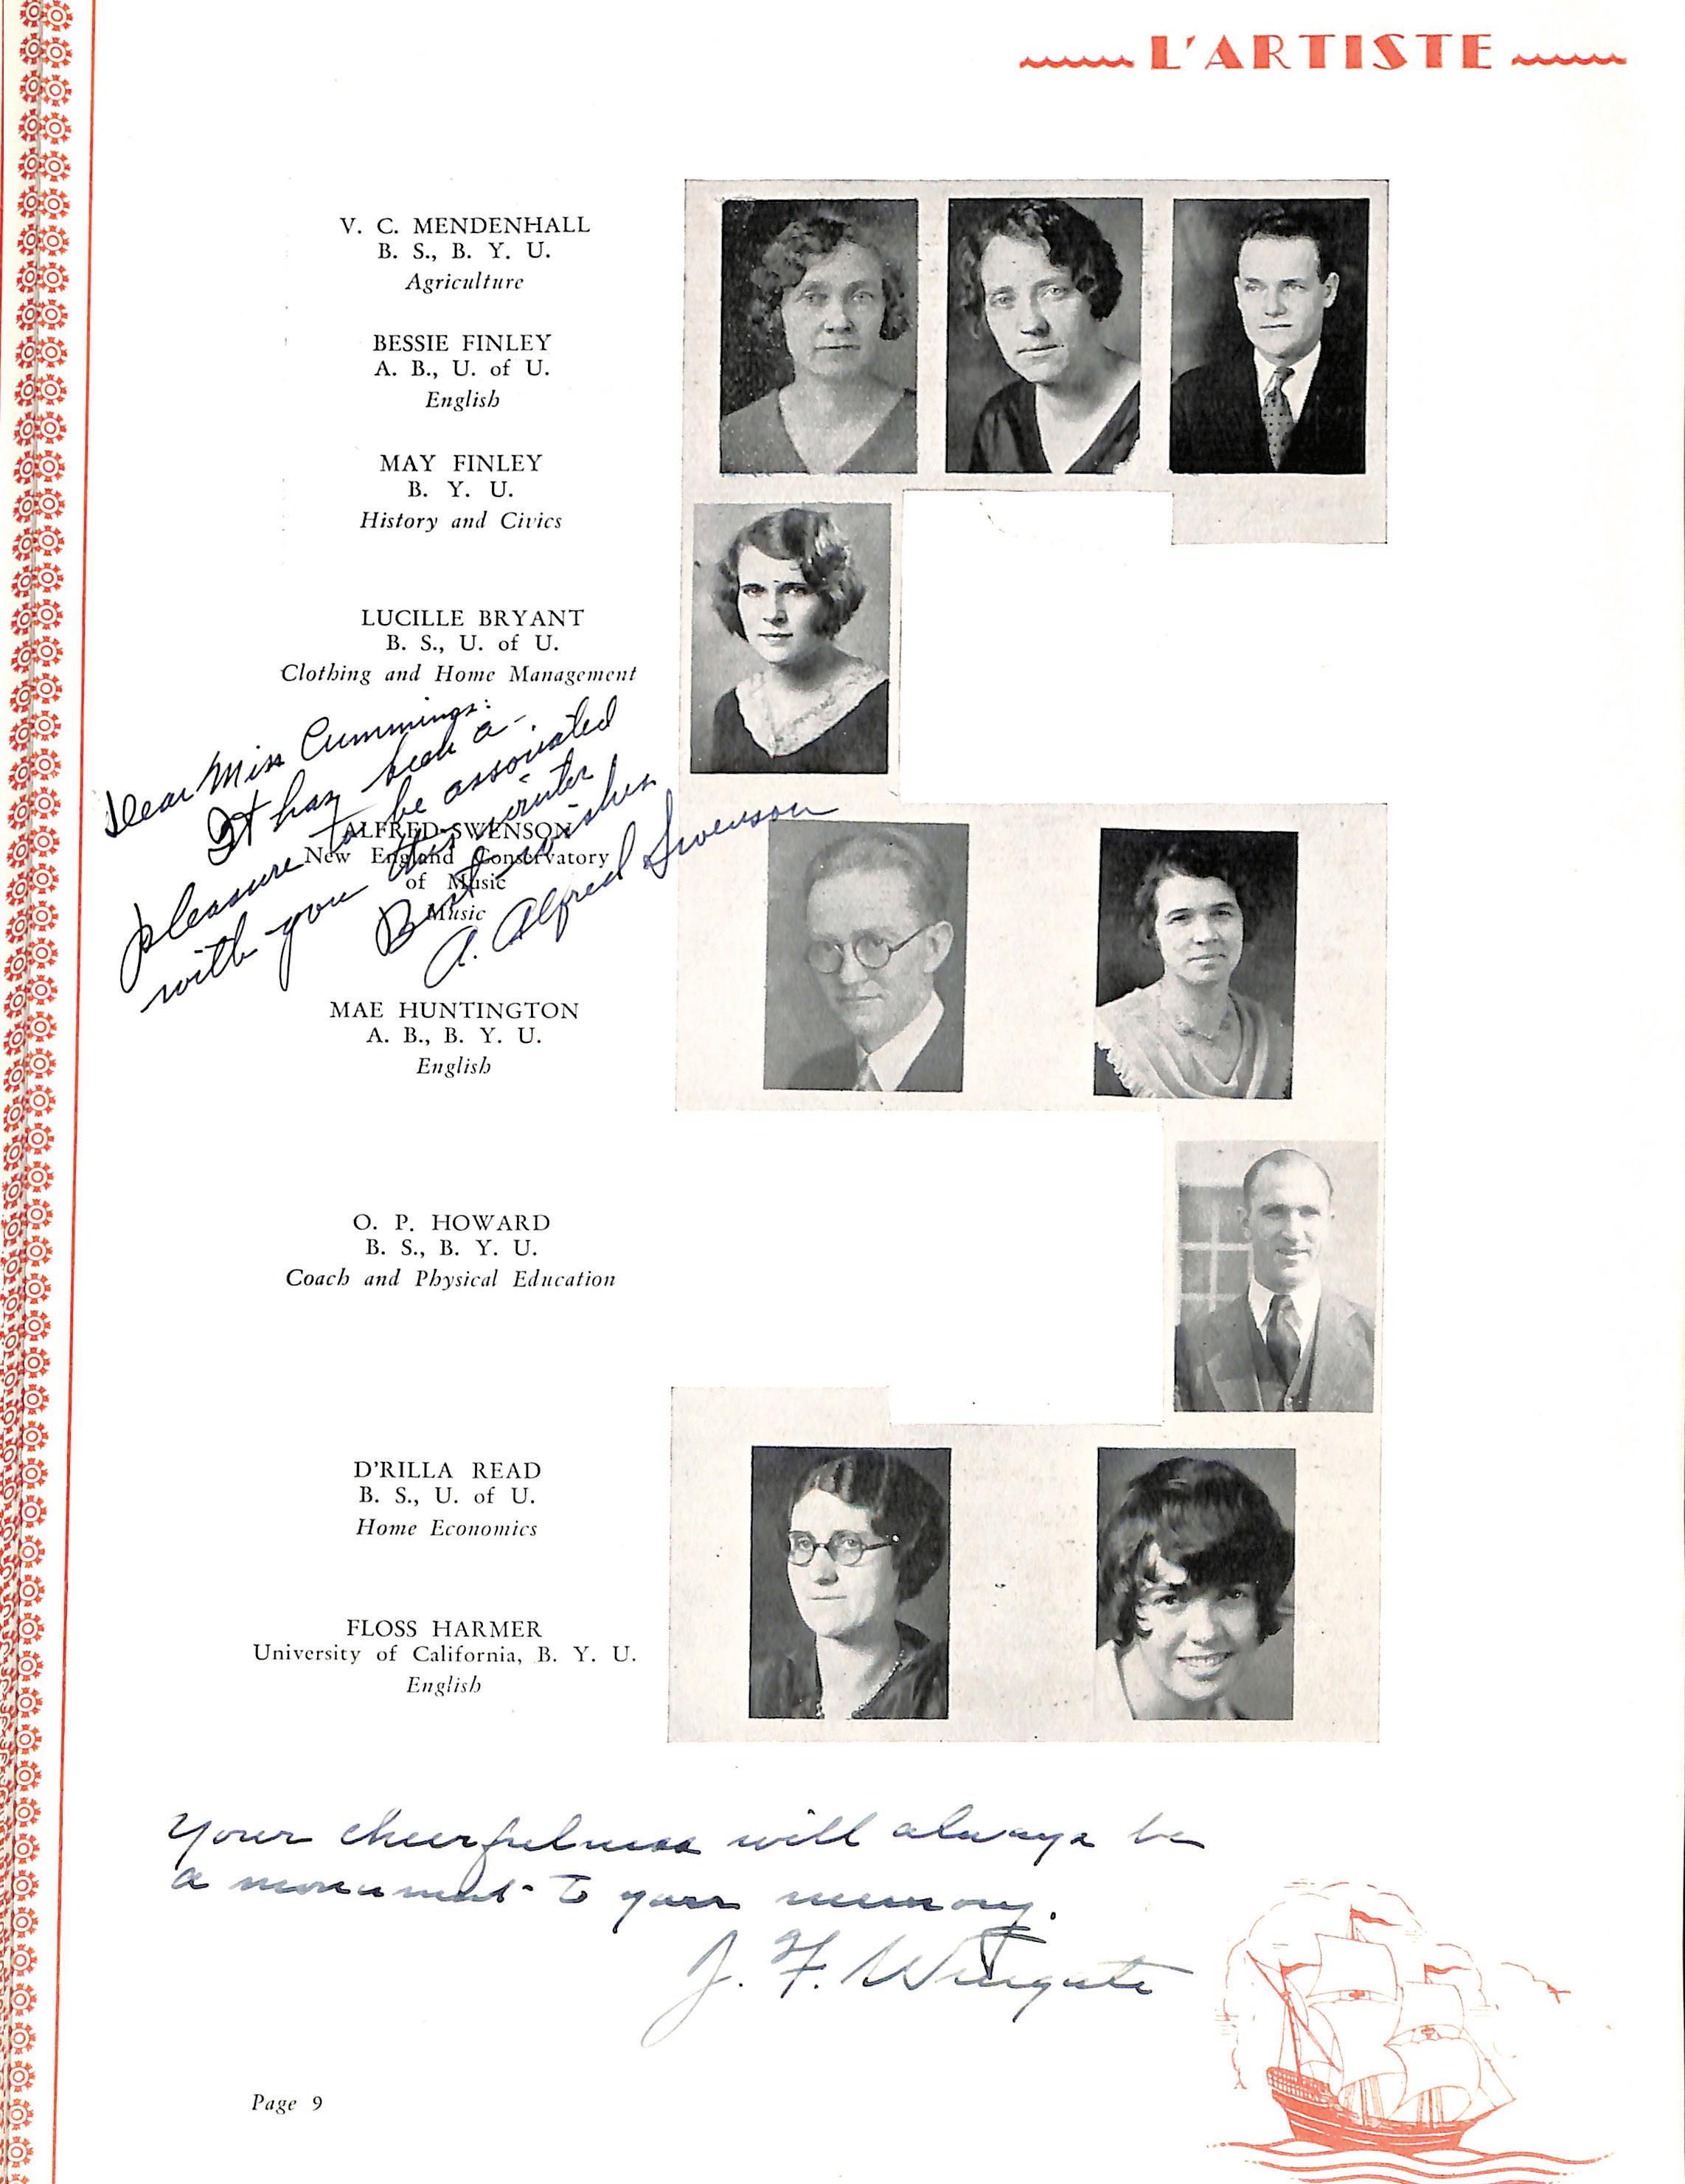 L'ARTISTE
V. C. MENDENHALL
B. S., B. Y. U.
Agriculture
BESSIE FINLEY
A. B., U. of U.
English
MAY FINLEY
B. Y. U.
History and Civics
LUCILLE BRYANT
B. S., U. of U.
Clothing and Home Management
Dear Miss Cummings:
It has been a
pleasure to be associated
with you this winter
Best wishes
A. Alfred Swenson
ALFRED SWENSON
New England Conservatory
of Music
Music
MAE HUNTINGTON
A. B., B. Y. U.
English
O. P. HOWARD
B. S., B. Y. U.
Coach and Physical Education
D'RILLA READ
B. S., U. of U.
Home Economics
FLOSS HARMER
University of California, B. Y. U.
English
Your cheerfulness will always be
a monument to your memory.
J. F. Wingate
Page 9